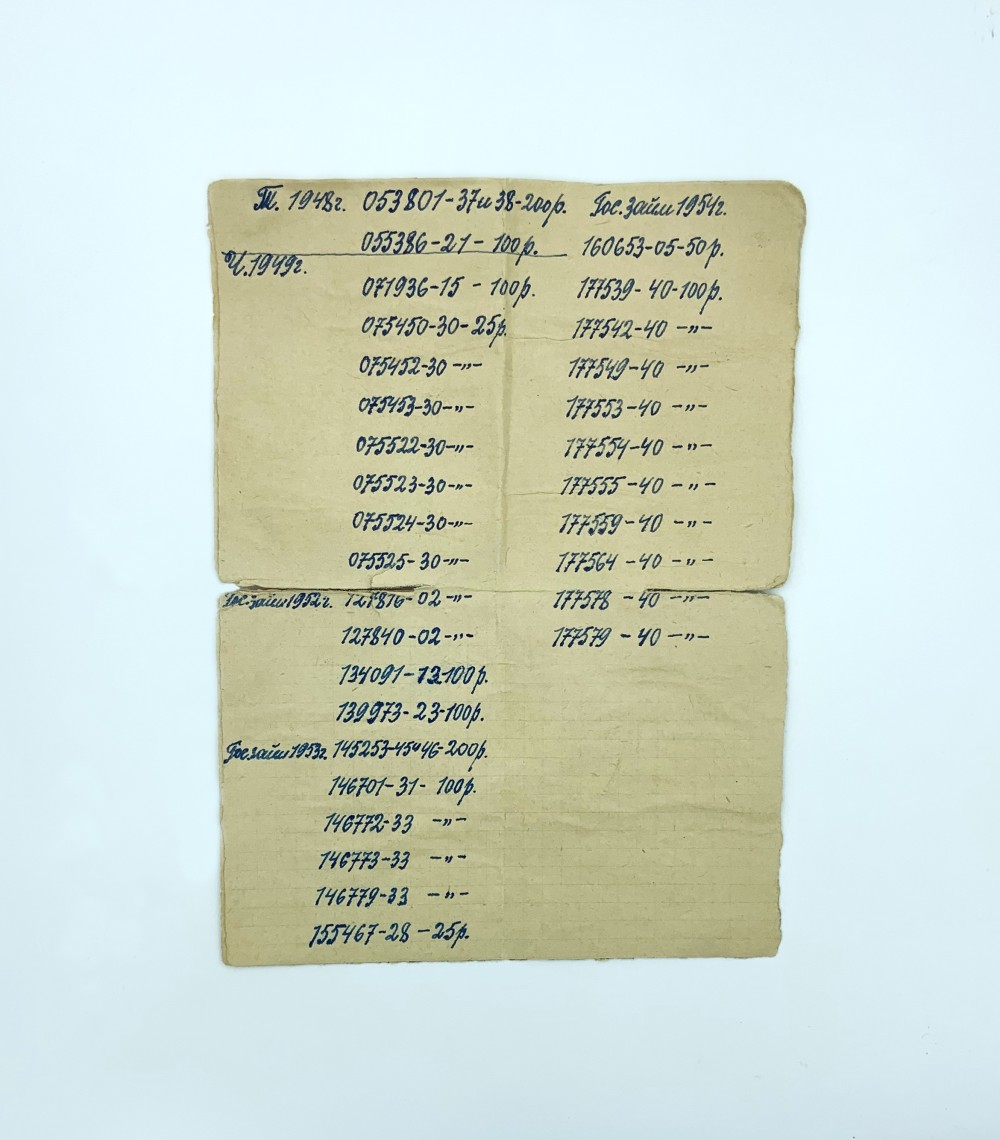 Т. 1948г. 053801-37и38-200р.
055386-21-100р.
Ч. 1949г.
071936-15-100р.
075450-30-25р.
075452-30-"-
075453-30-"-
075522-30-"-
075523-30-"-
075524-30-"-
075525-30-"-
Гос.займ1952г. 127816-02-"-
127840-02-"-
134091-13-100р.
139973-23-100р.
Гос.займ1953г. 145253-45и46-200р.
146701-31-100р.
146772-33 -"-
146773-33 -"-
146779-33 -"-
155467-28-25р.
Гос.займ1954г.
160653-05-50р.
177539-40-100р.
177542-40 -"-
177549-40 -"-
177553-40 -"-
177554-40 -"-
177555-40 -"-
177559-40 -"-
177564-40 -"-
177578-40 -"-
177579-40 -"-